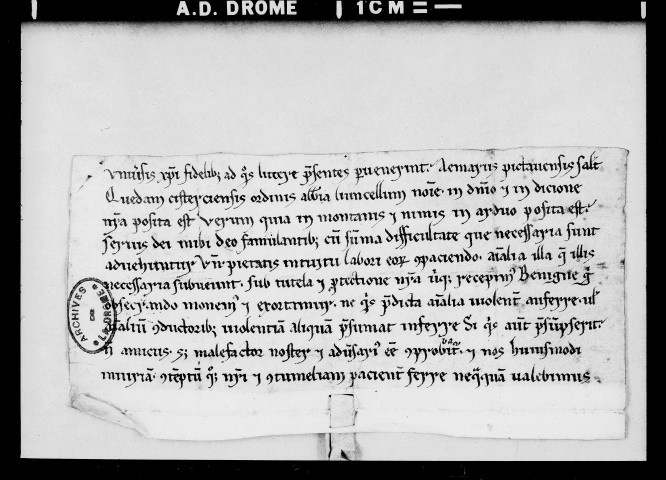 A.D. DROME 1CM =
Vniũsis xp̃i fidelib; ad q̃s littere p̃sentes puenerint. Aemarus pictauensis salt̃
Quedam cisterciensis ordinis abb̃ia liuncellum noĩe. in dñio ⁊ in dicione
nr̃a posita est Verum quia in montanis ⁊ nimis in arduo posita est.
seruis dei inibi deo famulantib; cũ sũma difficultate que necessaria sunt
aduehuntur Vñ pietatis intuitu labori eor̃ ꝯpaciendo. aĩalia illa q̃ illis
necessaria subueiunt. sub tutela ⁊ ꝓtectione nr̃a recepim᷒ Benigne
obsecrando monem᷒ ⁊ exortamur. ne q̃s p̃dicta aĩalia uiolent̃ auferre. ul̃
aĩaliũ ꝯductorib; uiolentiã aliquã p̃sumat inferre Si q̃s aũt p̃sũpserit.
ñ amicus. s; malefactor noster ⁊ adũsari᷒ ẽe ꝯprobabit᷑. ⁊ nos huiusmodi
iniuriã. ꝯtẽptũ nr̃i ⁊ ꝯtumeliam pacient̃ ferre neq̃quã ualebimus
ARCHIVES
8
LA DROME